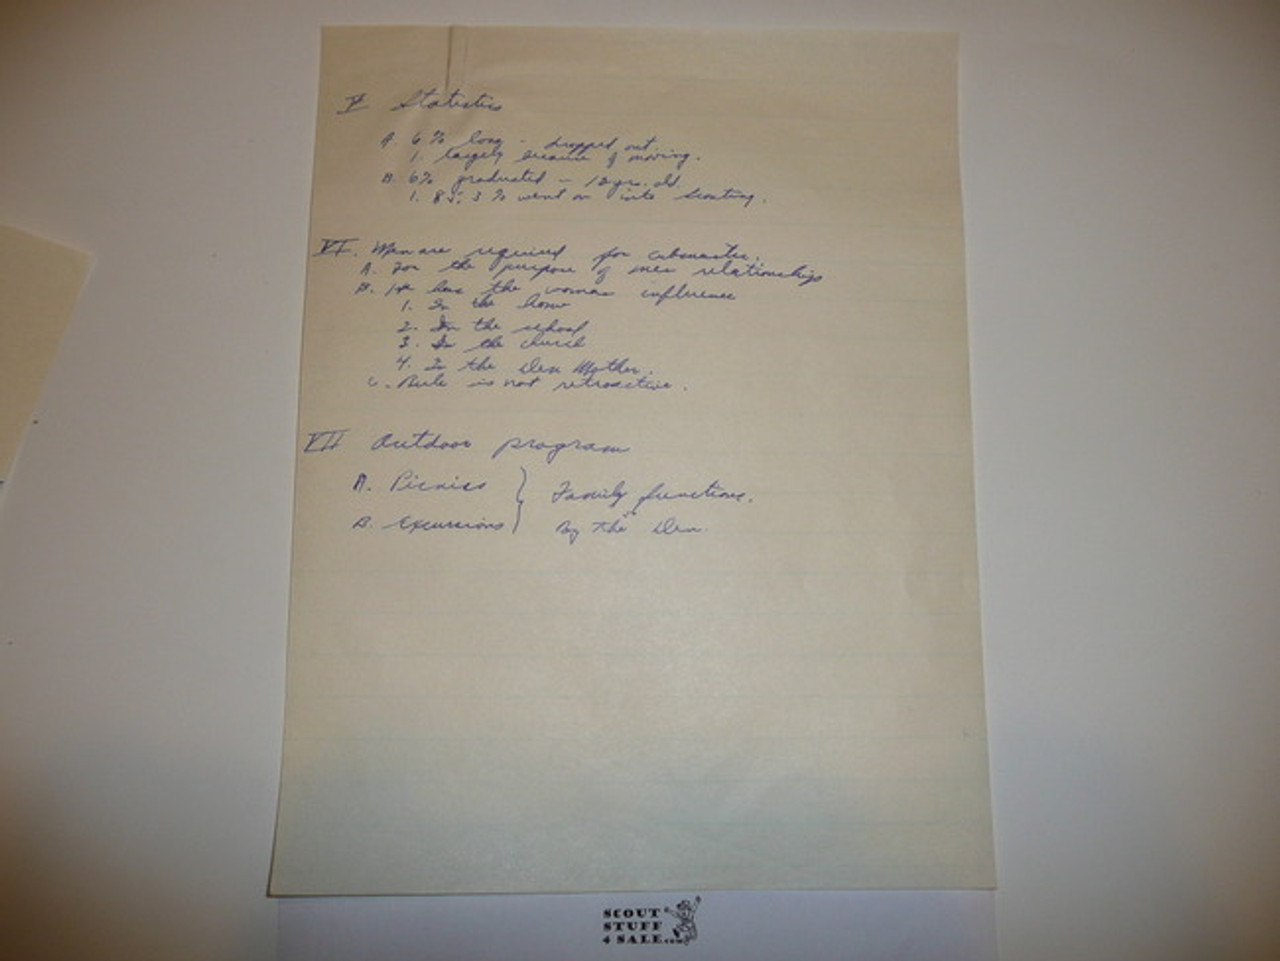 V Statistics
A. 6% loss - dropped out.
1. largely because of moving.
B. 6% graduated - 12 yrs. old.
1. 85.3% went on into Scouting.
VI. Men are required for cubmaster.
A. For the purpose of men relationships
B. He has the woman influence
1. In the home
2. In the school
3. In the church
4. In the Den Mother.
C. Rule is not retroactive.
VII Outdoor program
A. Picnics } Family functions.
B. Excursions } By the Den.
SCOUT
STUFF
4 SALE.com